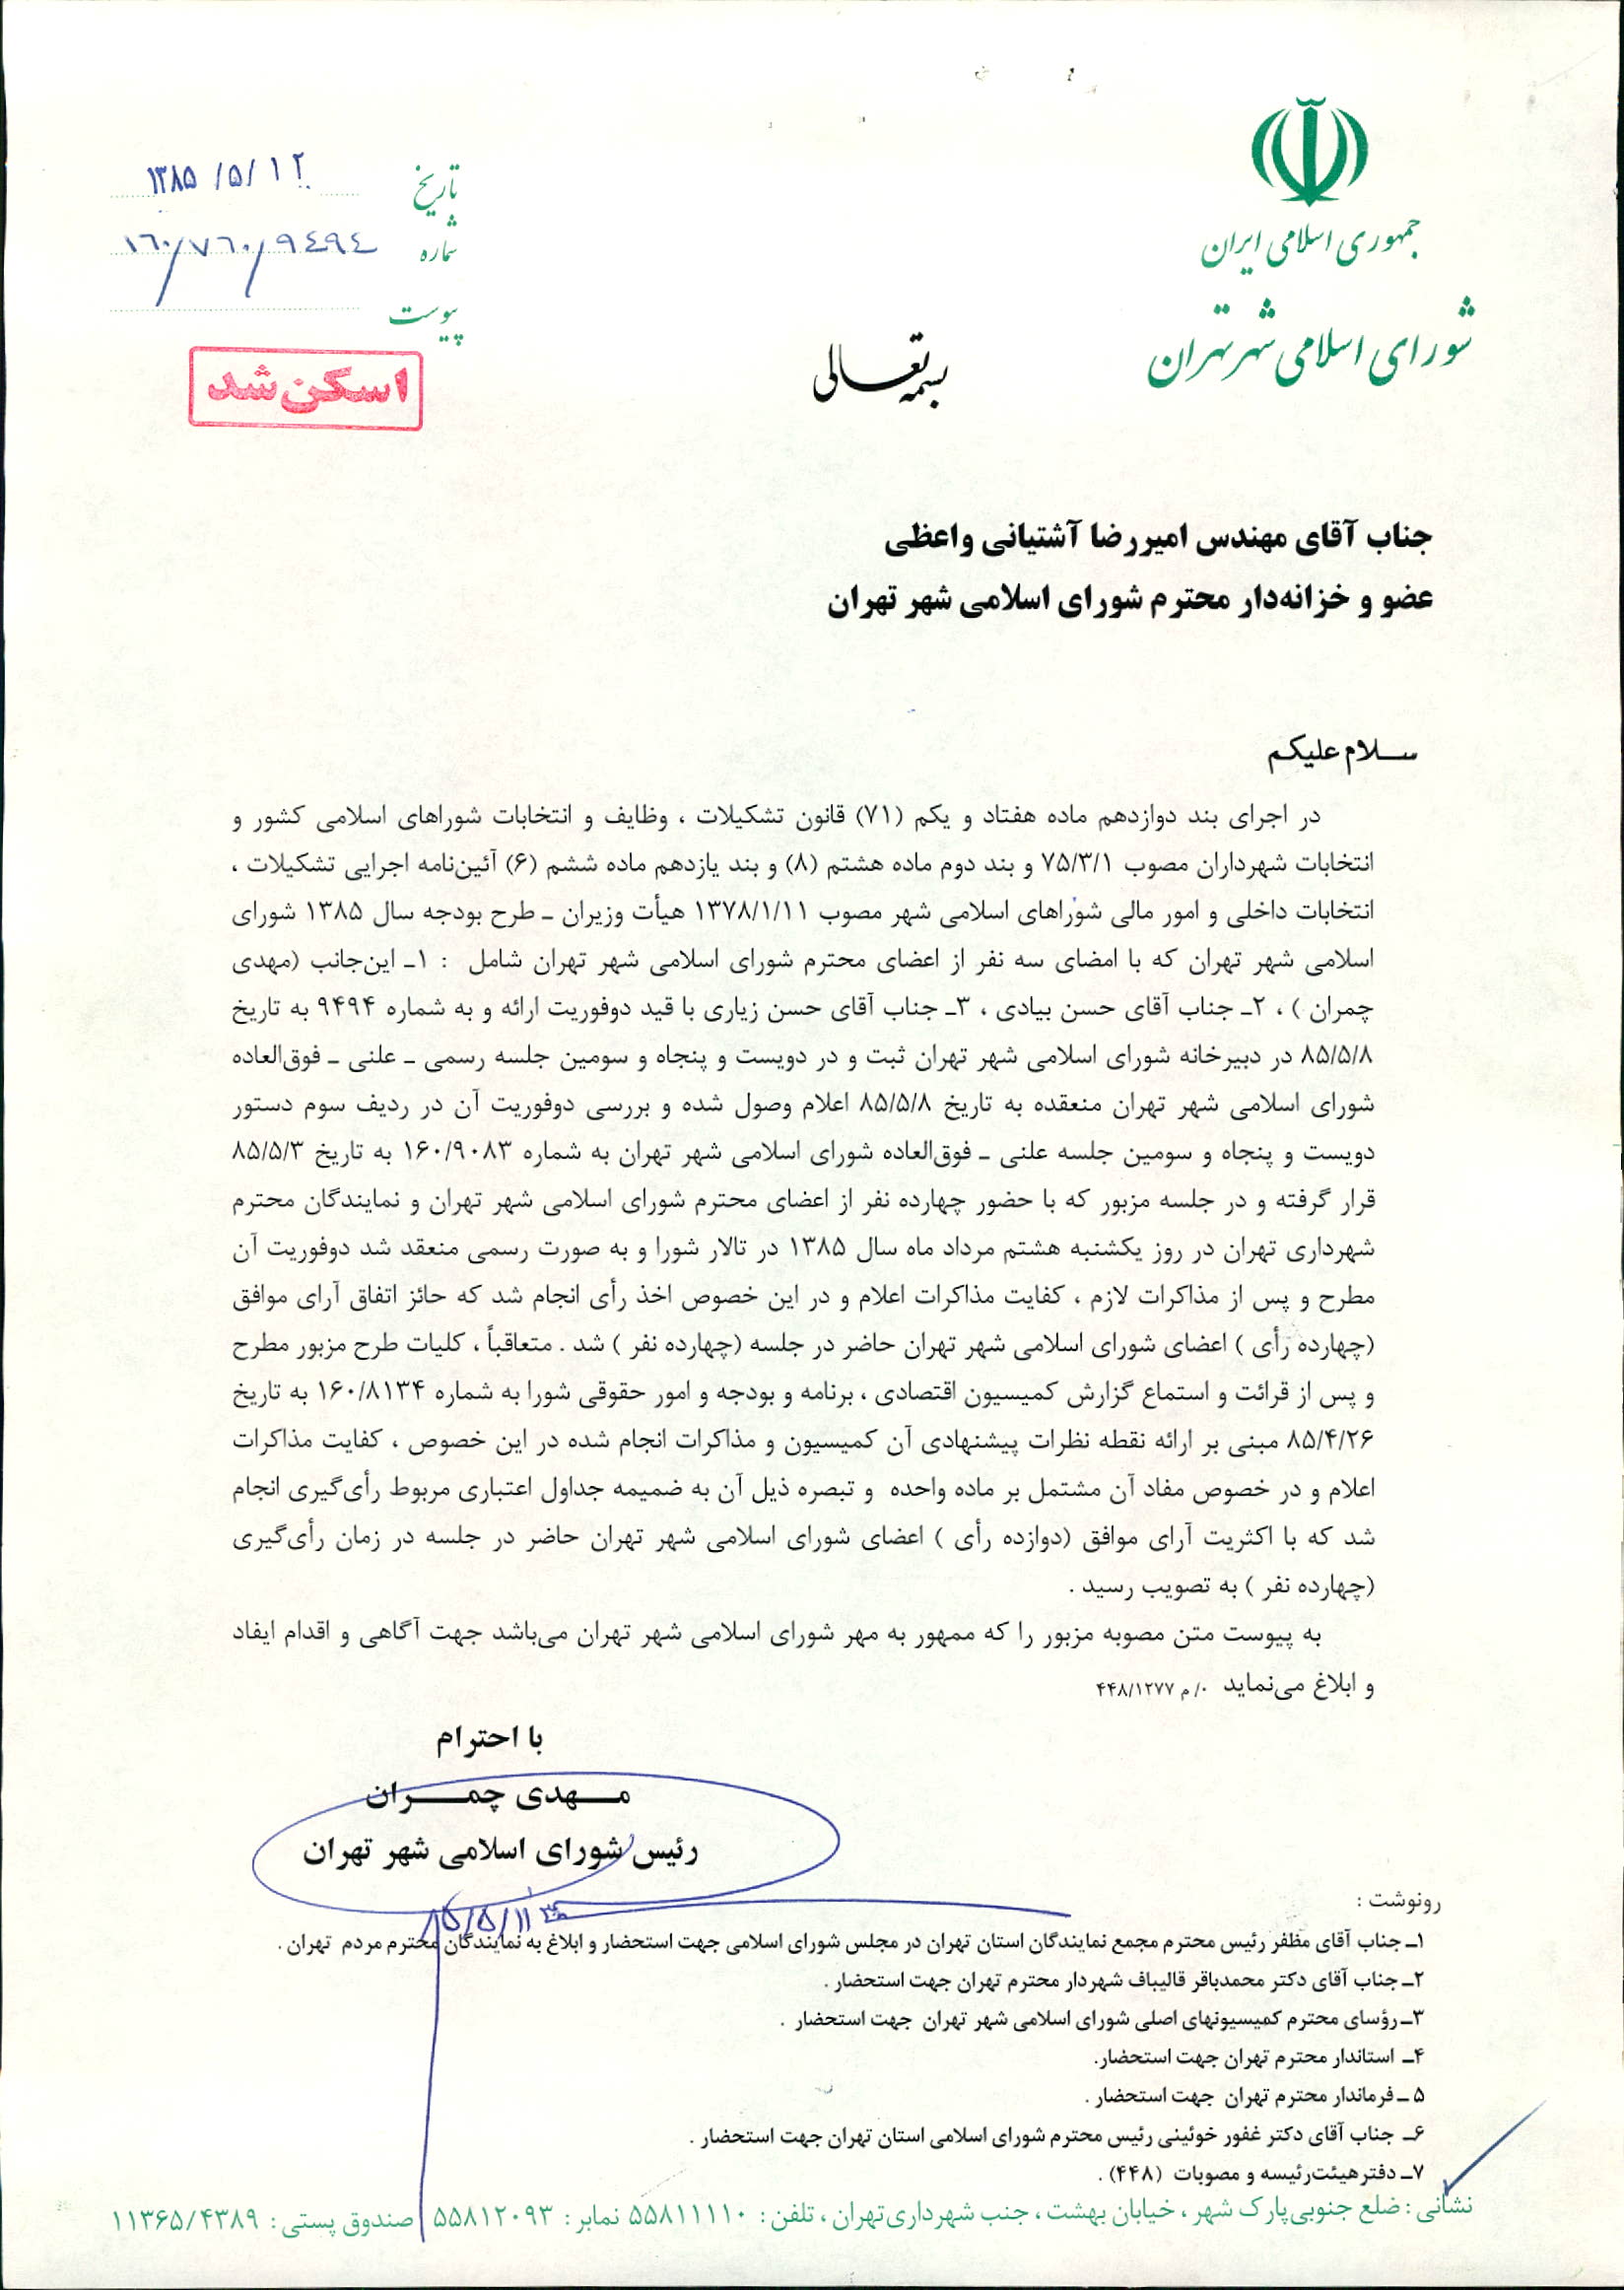 جمهوری اسلامی ایران
شورای اسلامی شهر تهران
تاریخ ۱۳۸۵/۵/۱۲
شماره ۱۶۰/۷۶۰/۹۴۹۴
پیوست
اسکن شد
بسمه تعالی
جناب آقای مهندس امیررضا آشتیانی واعظی
عضو و خزانه‌دار محترم شورای اسلامی شهر تهران
سلام علیکم
در اجرای بند دوازدهم ماده هفتاد و یکم (۷۱) قانون تشکیلات ، وظایف و انتخابات شوراهای اسلامی کشور و
انتخابات شهرداران مصوب ۷۵/۳/۱ و بند دوم ماده هشتم (۸) و بند یازدهم ماده ششم (۶) آئین‌نامه اجرایی تشکیلات ،
انتخابات داخلی و امور مالی شوراهای اسلامی شهر مصوب ۱۳۷۸/۱/۱۱ هیأت وزیران ـ طرح بودجه سال ۱۳۸۵ شورای
اسلامی شهر تهران که با امضای سه نفر از اعضای محترم شورای اسلامی شهر تهران شامل : ۱ـ این‌جانب (مهدی
چمران ) ، ۲ـ جناب آقای حسن بیادی ، ۳ـ جناب آقای حسن زیاری با قید دوفوریت ارائه و به شماره ۹۴۹۴ به تاریخ
۸۵/۵/۸ در دبیرخانه شورای اسلامی شهر تهران ثبت و در دویست و پنجاه و سومین جلسه رسمی ـ علنی ـ فوق‌العاده
شورای اسلامی شهر تهران منعقده به تاریخ ۸۵/۵/۸ اعلام وصول شده و بررسی دوفوریت آن در ردیف سوم دستور
دویست و پنجاه و سومین جلسه علنی ـ فوق‌العاده شورای اسلامی شهر تهران به شماره ۱۶۰/۹۰۸۳ به تاریخ ۸۵/۵/۳
قرار گرفته و در جلسه مزبور که با حضور چهارده نفر از اعضای محترم شورای اسلامی شهر تهران و نمایندگان محترم
شهرداری تهران در روز یکشنبه هشتم مرداد ماه سال ۱۳۸۵ در تالار شورا و به صورت رسمی منعقد شد دوفوریت آن
مطرح و پس از مذاکرات لازم ، کفایت مذاکرات اعلام و در این خصوص اخذ رأی انجام شد که حائز اتفاق آرای موافق
(چهارده رأی ) اعضای شورای اسلامی شهر تهران حاضر در جلسه (چهارده نفر ) شد . متعاقباً ، کلیات طرح مزبور مطرح
و پس از قرائت و استماع گزارش کمیسیون اقتصادی ، برنامه و بودجه و امور حقوقی شورا به شماره ۱۶۰/۸۱۳۴ به تاریخ
۸۵/۴/۲۶ مبنی بر ارائه نقطه نظرات پیشنهادی آن کمیسیون و مذاکرات انجام شده در این خصوص ، کفایت مذاکرات
اعلام و در خصوص مفاد آن مشتمل بر ماده واحده و تبصره ذیل آن به ضمیمه جداول اعتباری مربوط رأی‌گیری انجام
شد که با اکثریت آرای موافق (دوازده رأی ) اعضای شورای اسلامی شهر تهران حاضر در جلسه در زمان رأی‌گیری
(چهارده نفر ) به تصویب رسید .
به پیوست متن مصوبه مزبور را که ممهور به مهر شورای اسلامی شهر تهران می‌باشد جهت آگاهی و اقدام ایفاد
و ابلاغ می‌نماید ۰/ م ۴۴۸/۱۲۷۷
با احترام
مهدی چمران
رئیس شورای اسلامی شهر تهران
۸۵/۵/۱۱
رونوشت :
۱ـ جناب آقای مظفر رئیس محترم مجمع نمایندگان استان تهران در مجلس شورای اسلامی جهت استحضار و ابلاغ به نمایندگان محترم مردم تهران .
۲ـ جناب آقای دکتر محمدباقر قالیباف شهردار محترم تهران جهت استحضار .
۳ـ رؤسای محترم کمیسیونهای اصلی شورای اسلامی شهر تهران جهت استحضار .
۴ـ استاندار محترم تهران جهت استحضار.
۵ ـ فرماندار محترم تهران جهت استحضار .
۶ـ جناب آقای دکتر غفور خوئینی رئیس محترم شورای اسلامی استان تهران جهت استحضار .
۷ـ دفتر هیئت‌رئیسه و مصوبات (۴۴۸) .
نشانی : ضلع جنوبی پارک شهر ، خیابان بهشت ، جنب شهرداری تهران ، تلفن : ۵۵۸۱۱۱۱۰ نمابر : ۵۵۸۱۲۰۹۳ صندوق پستی : ۱۱۳۶۵/۴۳۸۹